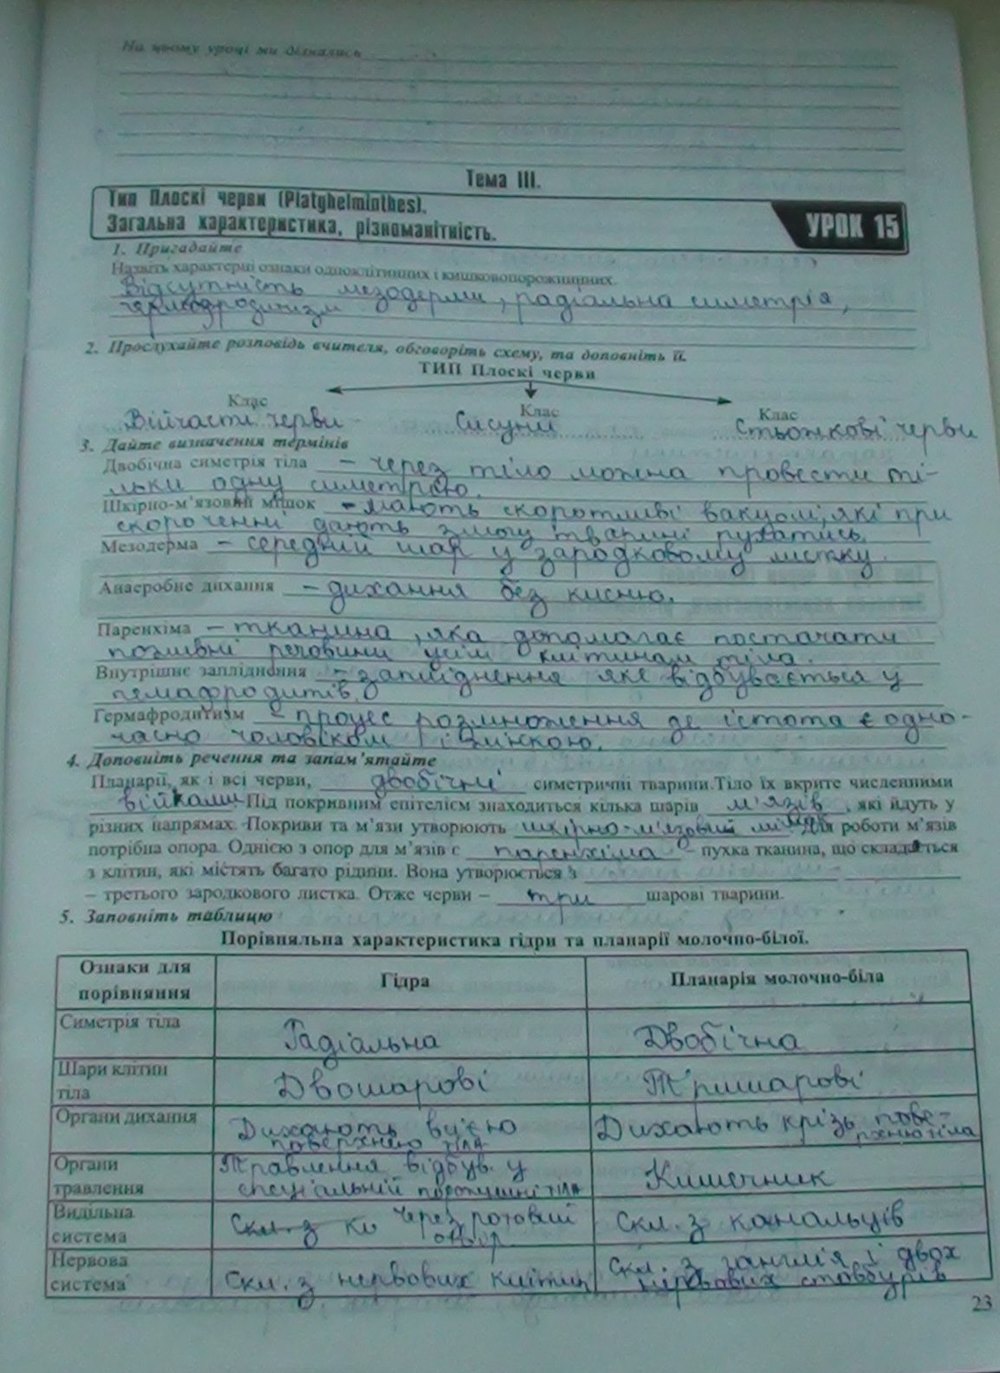 На цьому уроці ми дізнались
Тема III.
Тип Плоскі черви (Platyhelminthes).
Загальна характеристика, різноманітність.
УРОК 15
1. Пригадайте
Назвіть характерні ознаки одноклітинних і кишковопорожнинних.
Відсутність мезодерми, радіальна симетрія,
2. Прослухайте розповідь вчителя, обговоріть схему, та доповніть її.
ТИП Плоскі черви
Клас Клас Клас
Війчасті черви Сисуни Стьожкові черви
3. Дайте визначення термінів
Двобічна симетрія тіла – через тіло можна провести ті-
льки одну симетрію.
Шкірно-м'язовий мішок – мають скоротливі вакуолі, які при
скороченні дають змогу тварині рухатись.
Мезодерма – середній шар у зародковому листку.
Анаеробне дихання – дихання без кисню.
Паренхіма – тканина, яка допомагає постачати
поживні речовини усім клітинам тіла.
Внутрішнє запліднення – запліднення яке відбувається у
гемафродитів.
Гермафродитизм – процес розмноження де істота є одно-
часно чоловіком і жінкою.
4. Доповніть речення та запам'ятайте
Планарії, як і всі черви, двобічні симетричні тварини. Тіло їх вкрите численними
війками Під покривним епітелієм знаходиться кілька шарів м'язів, які йдуть у
різних напрямах. Покриви та м'язи утворюють шкірно-м'язовий мішок Для роботи м'язів
потрібна опора. Однією з опор для м'язів є паренхіма – пухка тканина, що складається
з клітин, які містять багато рідини. Вона утворюється з
– третього зародкового листка. Отже черви – три шарові тварини.
5. Заповніть таблицю
Порівняльна характеристика гідри та планарії молочно-білої.
Ознаки для порівняння Гідра Планарія молочно-біла
Симетрія тіла Радіальна Двобічна
Шари клітин тіла Двошарові Тришарові
Органи дихання Дихають всією поверхнею тіла Дихають крізь пове-
рхню тіла
Органи травлення Травлення відбув. у
спеціальній порожнині тіла Кишечник
Видільна система через ротовий
отвір Скл. з канальців
Нервова система Скл. з нервових клітин Скл. з ганглія і двох
нервових стовбурів
23